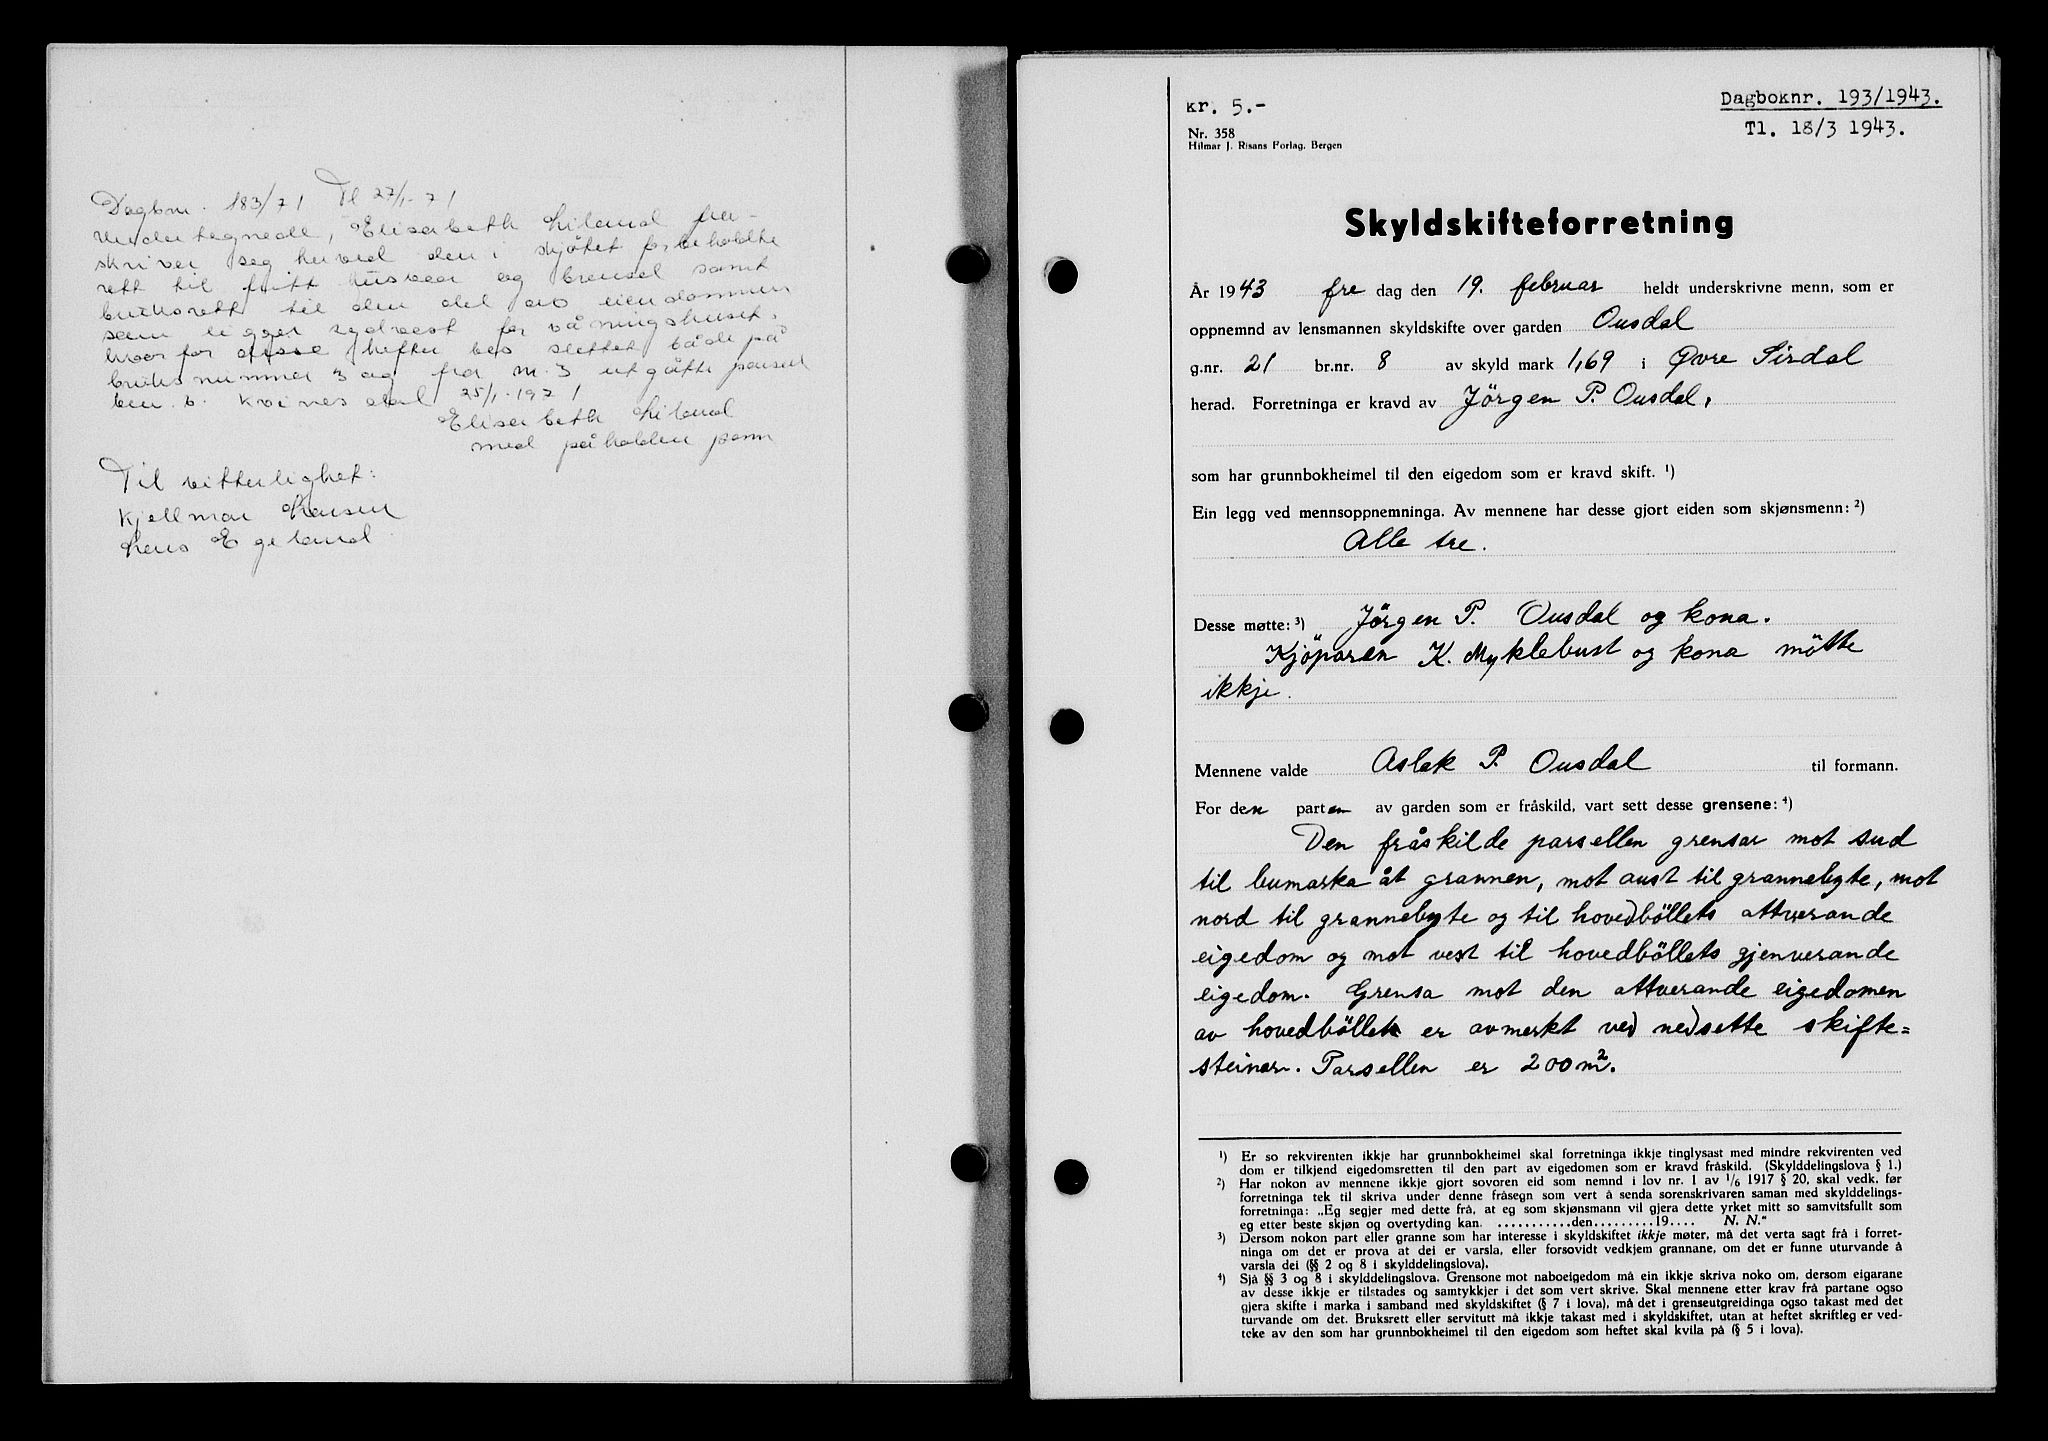 Dagbnr. 183/71 Tl 27/1-71
Undertegnede, Elisabeth Liland fra-
skriver seg herved den i skjøtet forbeholdte
rett til fritt husvær og brensel samt
bruksrett til den del av eiendommen
som ligger sydvest for våningshuset,
hvorfor disse hefter bes slettet både på
bruksnummer 3 og fra nr. 3 utgåtte parsell
bnr. 6. Kvinesdal 25/1-1971
Elisabeth Liland
med påholden penn
Til vitterlighet:
Kjellmar Larsen
Lars Egeland
kr. 5.-
Nr. 358
Hilmar J. Risans Forlag, Bergen
Dagboknr. 193/1943.
Tl. 18/3 1943.
Skyldskifteforretning
År 1943 fre dag den 19. februar heldt underskrivne menn, som er
oppnemnd av lensmannen skyldskifte over garden Ousdal
g.nr. 21 br.nr. 8 av skyld mark 1,69 i Øvre Sirdal
herad. Forretninga er kravd av Jörgen P. Ousdal,
som har grunnbokheimel til den eigedom som er kravd skift. ¹)
Ein legg ved mennsoppnemninga. Av mennene har desse gjort eiden som skjønsmenn: ²)
Alle tre.
Desse møtte: ³) Jörgen P. Ousdal og kona.
Kjöparen K. Myklebust og kona mötte
ikkje.
Mennene valde Aslak P. Ousdal til formann.
For den parten av garden som er fråskild, vart sett desse grensene: ⁴)
Den fråskilde parsellen grensar mot sud
til bumarka åt grannen, mot aust til grannebyte, mot
nord til grannebyte og til hovedböllets attverande
eigedom og mot vest til hovedböllets gjenverande
eigedom. Grensa mot den attverande eigedomen
av hovedböllet er avmerkt ved nedsette skifte=
steinar. Parsellen er 200 m².
¹) Er so rekvirenten ikkje har grunnbokheimel skal forretninga ikkje tinglysast med mindre rekvirenten ved
dom er tilkjend eigedomsretten til den part av eigedomen som er kravd fråskild. (Skylddelingslova § 1.)
²) Har nokon av mennene ikkje gjort sovoren eid som nemnd i lov nr. 1 av 1/6 1917 § 20, skal vedk. før
forretninga tek til skriva under denne fråsegn som vert å senda sorenskrivaren saman med skylddelings-
forretninga: „Eg segjer med dette frå, at eg som skjønsmann vil gjera dette yrket mitt so samvitsfullt som
eg etter beste skjøn og overtyding kan. ...........den.........19.... N. N.“
³) Dersom nokon part eller granne som har interesse i skyldskiftet ikkje møter, må det verta sagt frå i forret-
ninga om det er prova at dei er varsla, eller forsovidt vedkjem grannane, om det er funne uturvande å
varsla dei (§§ 2 og 8 i skylddelingslova).
⁴) Sjå §§ 3 og 8 i skylddelingslova. Grensone mot naboeigedom må ein ikkje skriva noko om, dersom eigarane
av desse ikkje er tilstades og samtykkjer i det som vert skrive. Skal mennene etter krav frå partane ogso
gjera skifte i marka i samband med skyldskiftet (§ 7 i lova), må det i grenseutgreidinga ogso takast med det
turvande om det. Bruksrett eller servitutt må ikkje takast med i skyldskiftet, utan at heftet skriftleg er ved-
teke av den som har grunnbokheimel til den eigedom som heftet skal kvila på (§ 5 i lova).